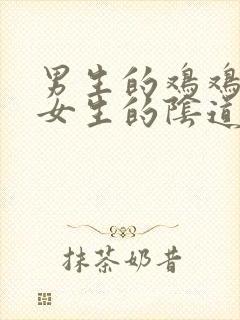 男生的鸡鸡
女生的陰道
抹茶奶昔